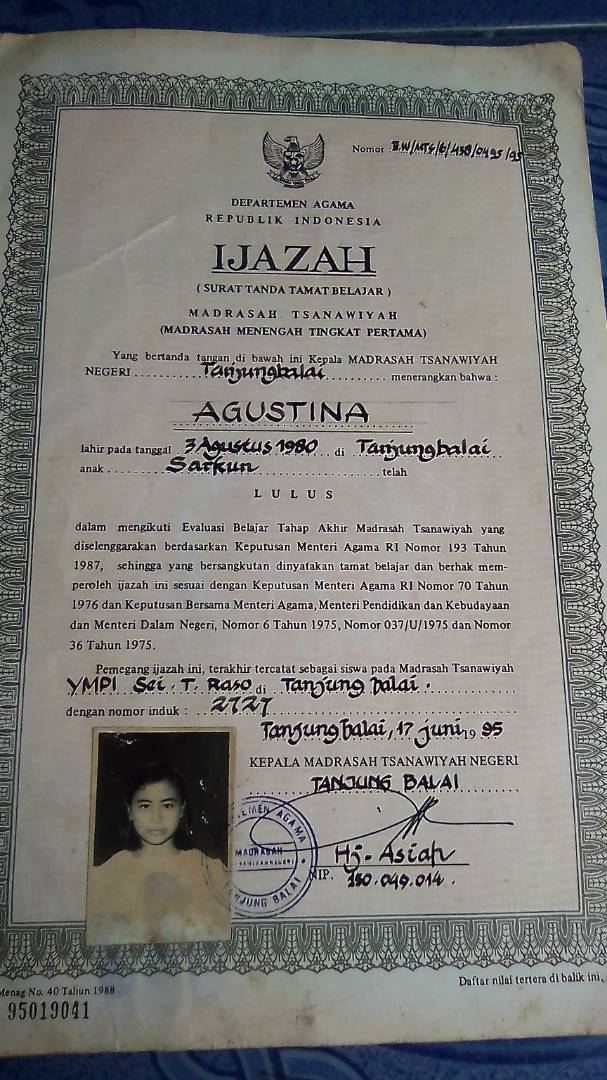 Nomor E.W/MTs/6/438/0495/95
DEPARTEMEN AGAMA
REPUBLIK INDONESIA
IJAZAH
( SURAT TANDA TAMAT BELAJAR )
MADRASAH TSANAWIYAH
(MADRASAH MENENGAH TINGKAT PERTAMA)
Yang bertanda tangan di bawah ini Kepala MADRASAH TSANAWIYAH
NEGERI ........ Tanjungbalai .......... menerangkan bahwa :
AGUSTINA
lahir pada tanggal 3 Agustus 1980 di Tanjungbalai
anak ........ Sarkun ........ telah
LULUS
dalam mengikuti Evaluasi Belajar Tahap Akhir Madrasah Tsanawiyah yang
diselenggarakan berdasarkan Keputusan Menteri Agama RI Nomor 193 Tahun
1987, sehingga yang bersangkutan dinyatakan tamat belajar dan berhak mem-
peroleh ijazah ini sesuai dengan Keputusan Menteri Agama RI Nomor 70 Tahun
1976 dan Keputusan Bersama Menteri Agama, Menteri Pendidikan dan Kebudayaan
dan Menteri Dalam Negeri, Nomor 6 Tahun 1975, Nomor 037/U/1975 dan Nomor
36 Tahun 1975.
Pemegang ijazah ini, terakhir tercatat sebagai siswa pada Madrasah Tsanawiyah
YMPI Sei. T. Raso di Tanjung balai.
dengan nomor induk : 2727
Tanjung balai, 17 juni 19 95
KEPALA MADRASAH TSANAWIYAH NEGERI
TANJUNG BALAI
Hj. Asiah
NIP. 150.049.014.
DEPARTEMEN AGAMA
MADRASAH
TANJUNG BALAI
Menag No. 40 Tahun 1988
95019041
Daftar nilai tertera di balik ini,